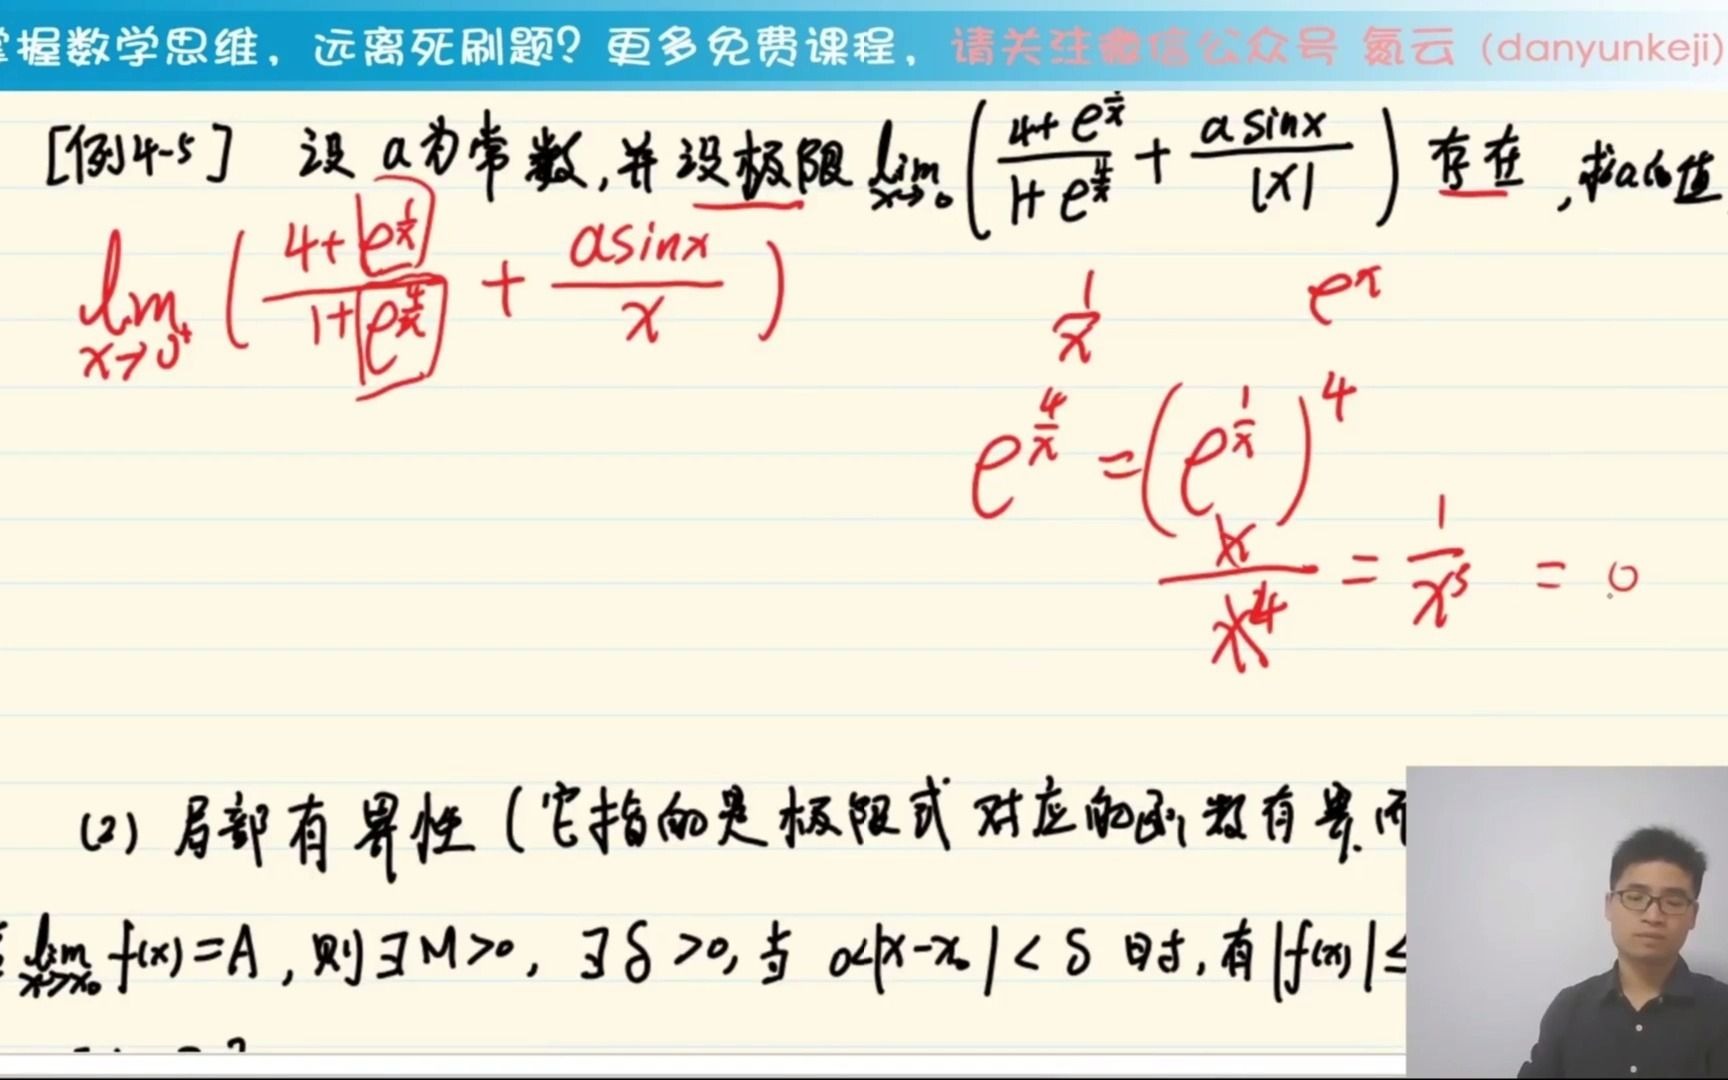 掌握数学思维，远离死刷题？更多免费课程，请关注微信公众号 氮云（danyunkeji）
[例4-5] 设 a为常数,并设极限 lim x→0 ( (4+e^{1/x})/(1+e^{4/x}) + (a sinx)/|x| ) 存在,求a的值
lim x→0⁺ ( (4+e^{1/x})/(1+e^{4/x}) + (a sinx)/x )
1/x
e^x
e^{4/x} = (e^{1/x})^4
= 1/x³ = 0
(2) 局部有界性 (它指的是极限式对应的函数有界.而
lim x→x₀ f(x)=A, 则∃M>0, ∃δ>0, 当 0<|x-x₀|<δ 时, 有|f(x)|≤